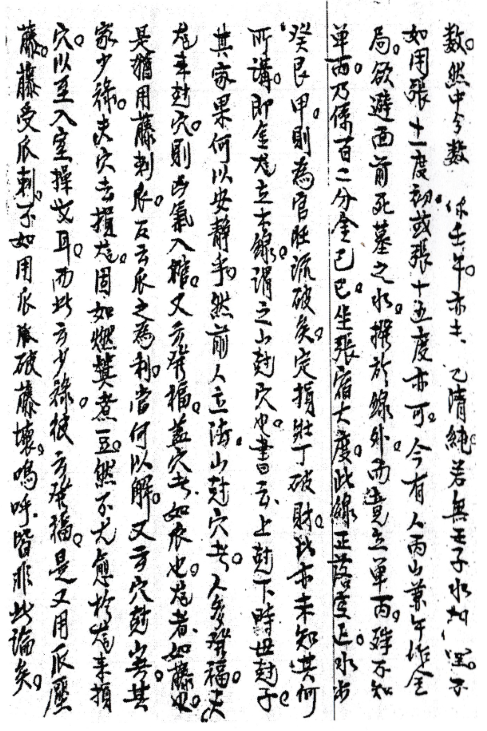 數。然中今數 休壬午亦土、乙清純。若無壬子水 。不
如用張十一度初或張十五度亦可。今有人丙山兼午作金
局。欲避面前死墓之水。撥於線外而竟立單丙。殊不知
單丙乃係百二分金己巳。坐張宿大度。此線正落空亡。水出
癸艮甲。則為官旺流破矣。定損壯丁破財。此亦未知其何
所謂。即金龍立去線。謂之山尅穴也。書云上尅下時毋尅子。
其家果何以安靜乎。然前人立法。山尅穴者。人多發福。夫
龍來尅穴。則凶氣入權。又云發福。蓋穴者如瓜也。龍者如藤也。
是猶用藤刺瓜。反云瓜之為利。當何以解。又云穴尅山者。其
家少祿。夫穴去損龍。固如燃萁煮豆。然不尤愈於龍來損
穴以至入室操戈耳。而此云少祿。彼云發福。是又用瓜壓
藤。藤受瓜刺。不如用瓜 破藤壞。嗚呼。皆非此論矣。